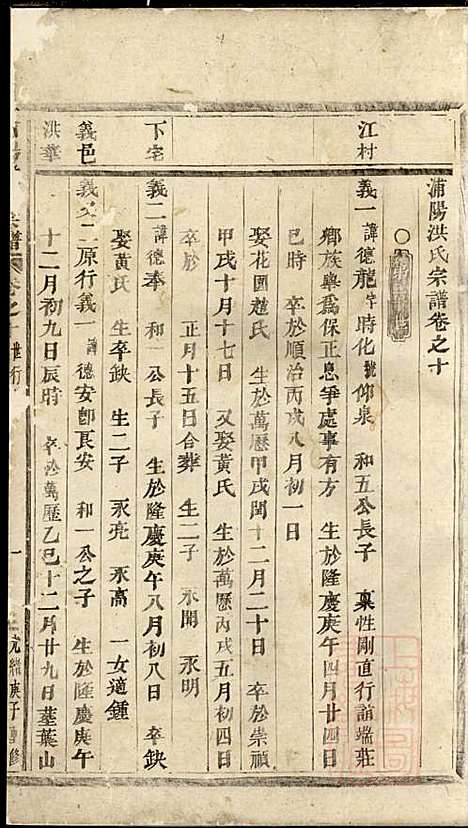 浦陽洪氏宗譜卷之十
江村
義一 諱德龍字時化號仰泉 和五公長子 稟性剛直行誼端莊
鄉族舉爲保正息爭處事有方 生於隆慶庚午四月廿四日
巳時 卒於順治丙戌八月初一日
娶花園趙氏 生於萬歷甲戌閏十二月二十日 卒於崇禎
甲戌十月十七日 又娶黃氏 生於萬歷丙戌五月初四日
卒於 正月十五日合葬 生二子 永開 永明
下宅
義二 諱德奉 和一公長子 生於隆慶庚午八月初八日 卒缺
娶黃氏 生卒缺 生二子 永亮 永高 一女適鍾
義邑
義又二原行義一諱德安卽長安 和一公之子 生於隆慶庚午
洪華
十二月初九日辰時 卒於萬歷乙巳十二月廿九日塟葉山
宗譜 卷之十 世行 一 光緒庚子重修